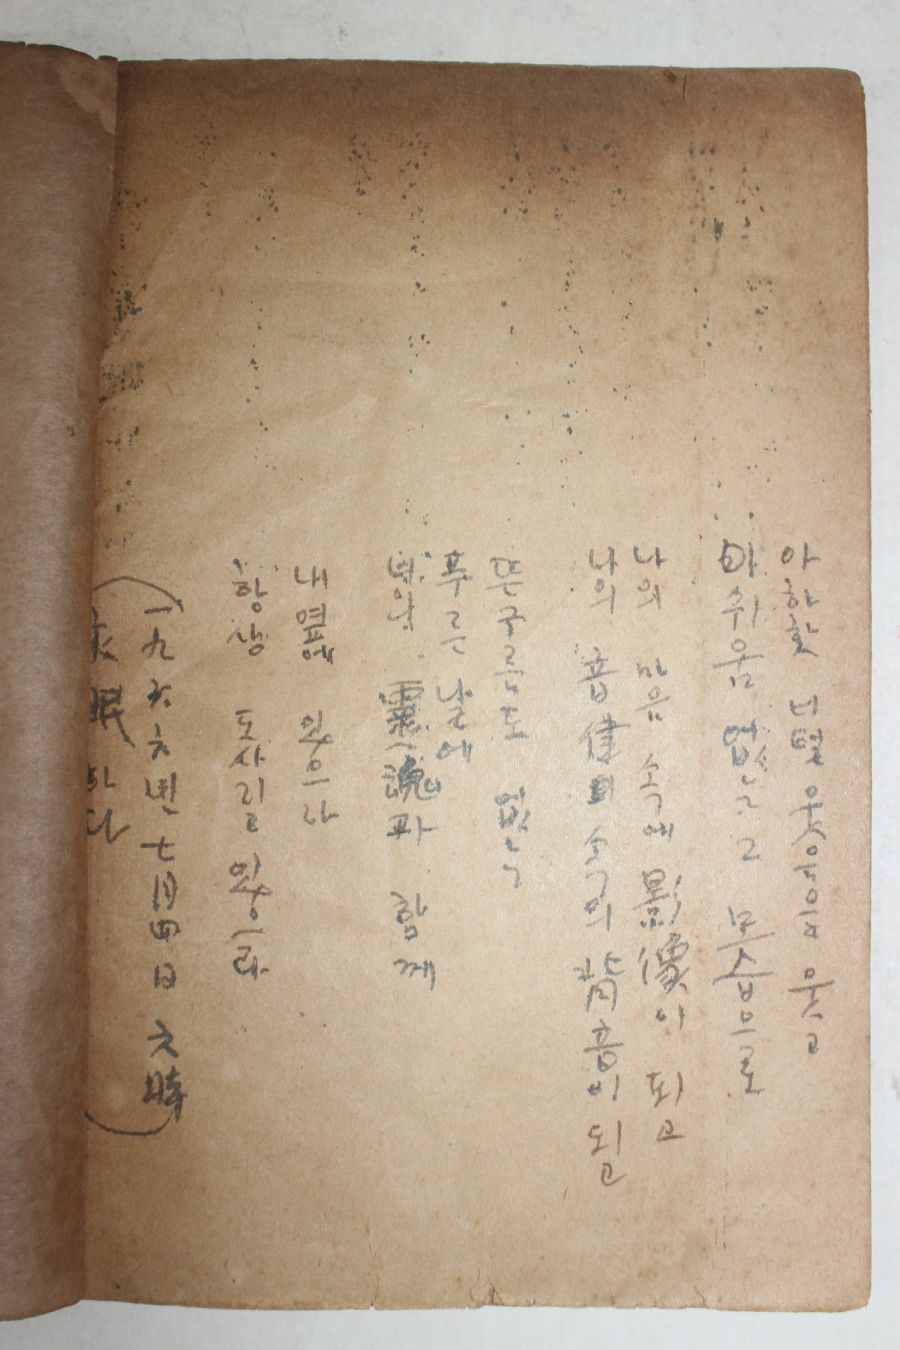 아하핳 너털웃음을 웃고
아쉬움 없는 그 모습으로
나의 마음 속에 影像이 되고
나의 音律의 속의 背音이 되고
뜬구름도 없는
푸른 날에
너의 靈魂과 함께
내 옆에 있으라
항상 도사릴 있으라
(一九六六年 七月四日 六時
永眠하다)